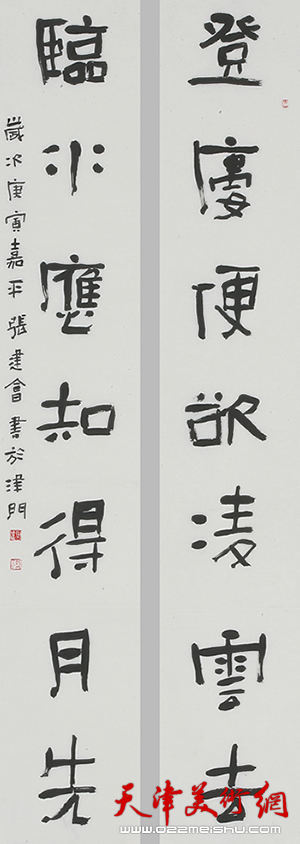 登廔便欲凌雲去
臨水應知得月先
歲次庚寅嘉平張建會書於津門
天津美術網
www.022meishu.com